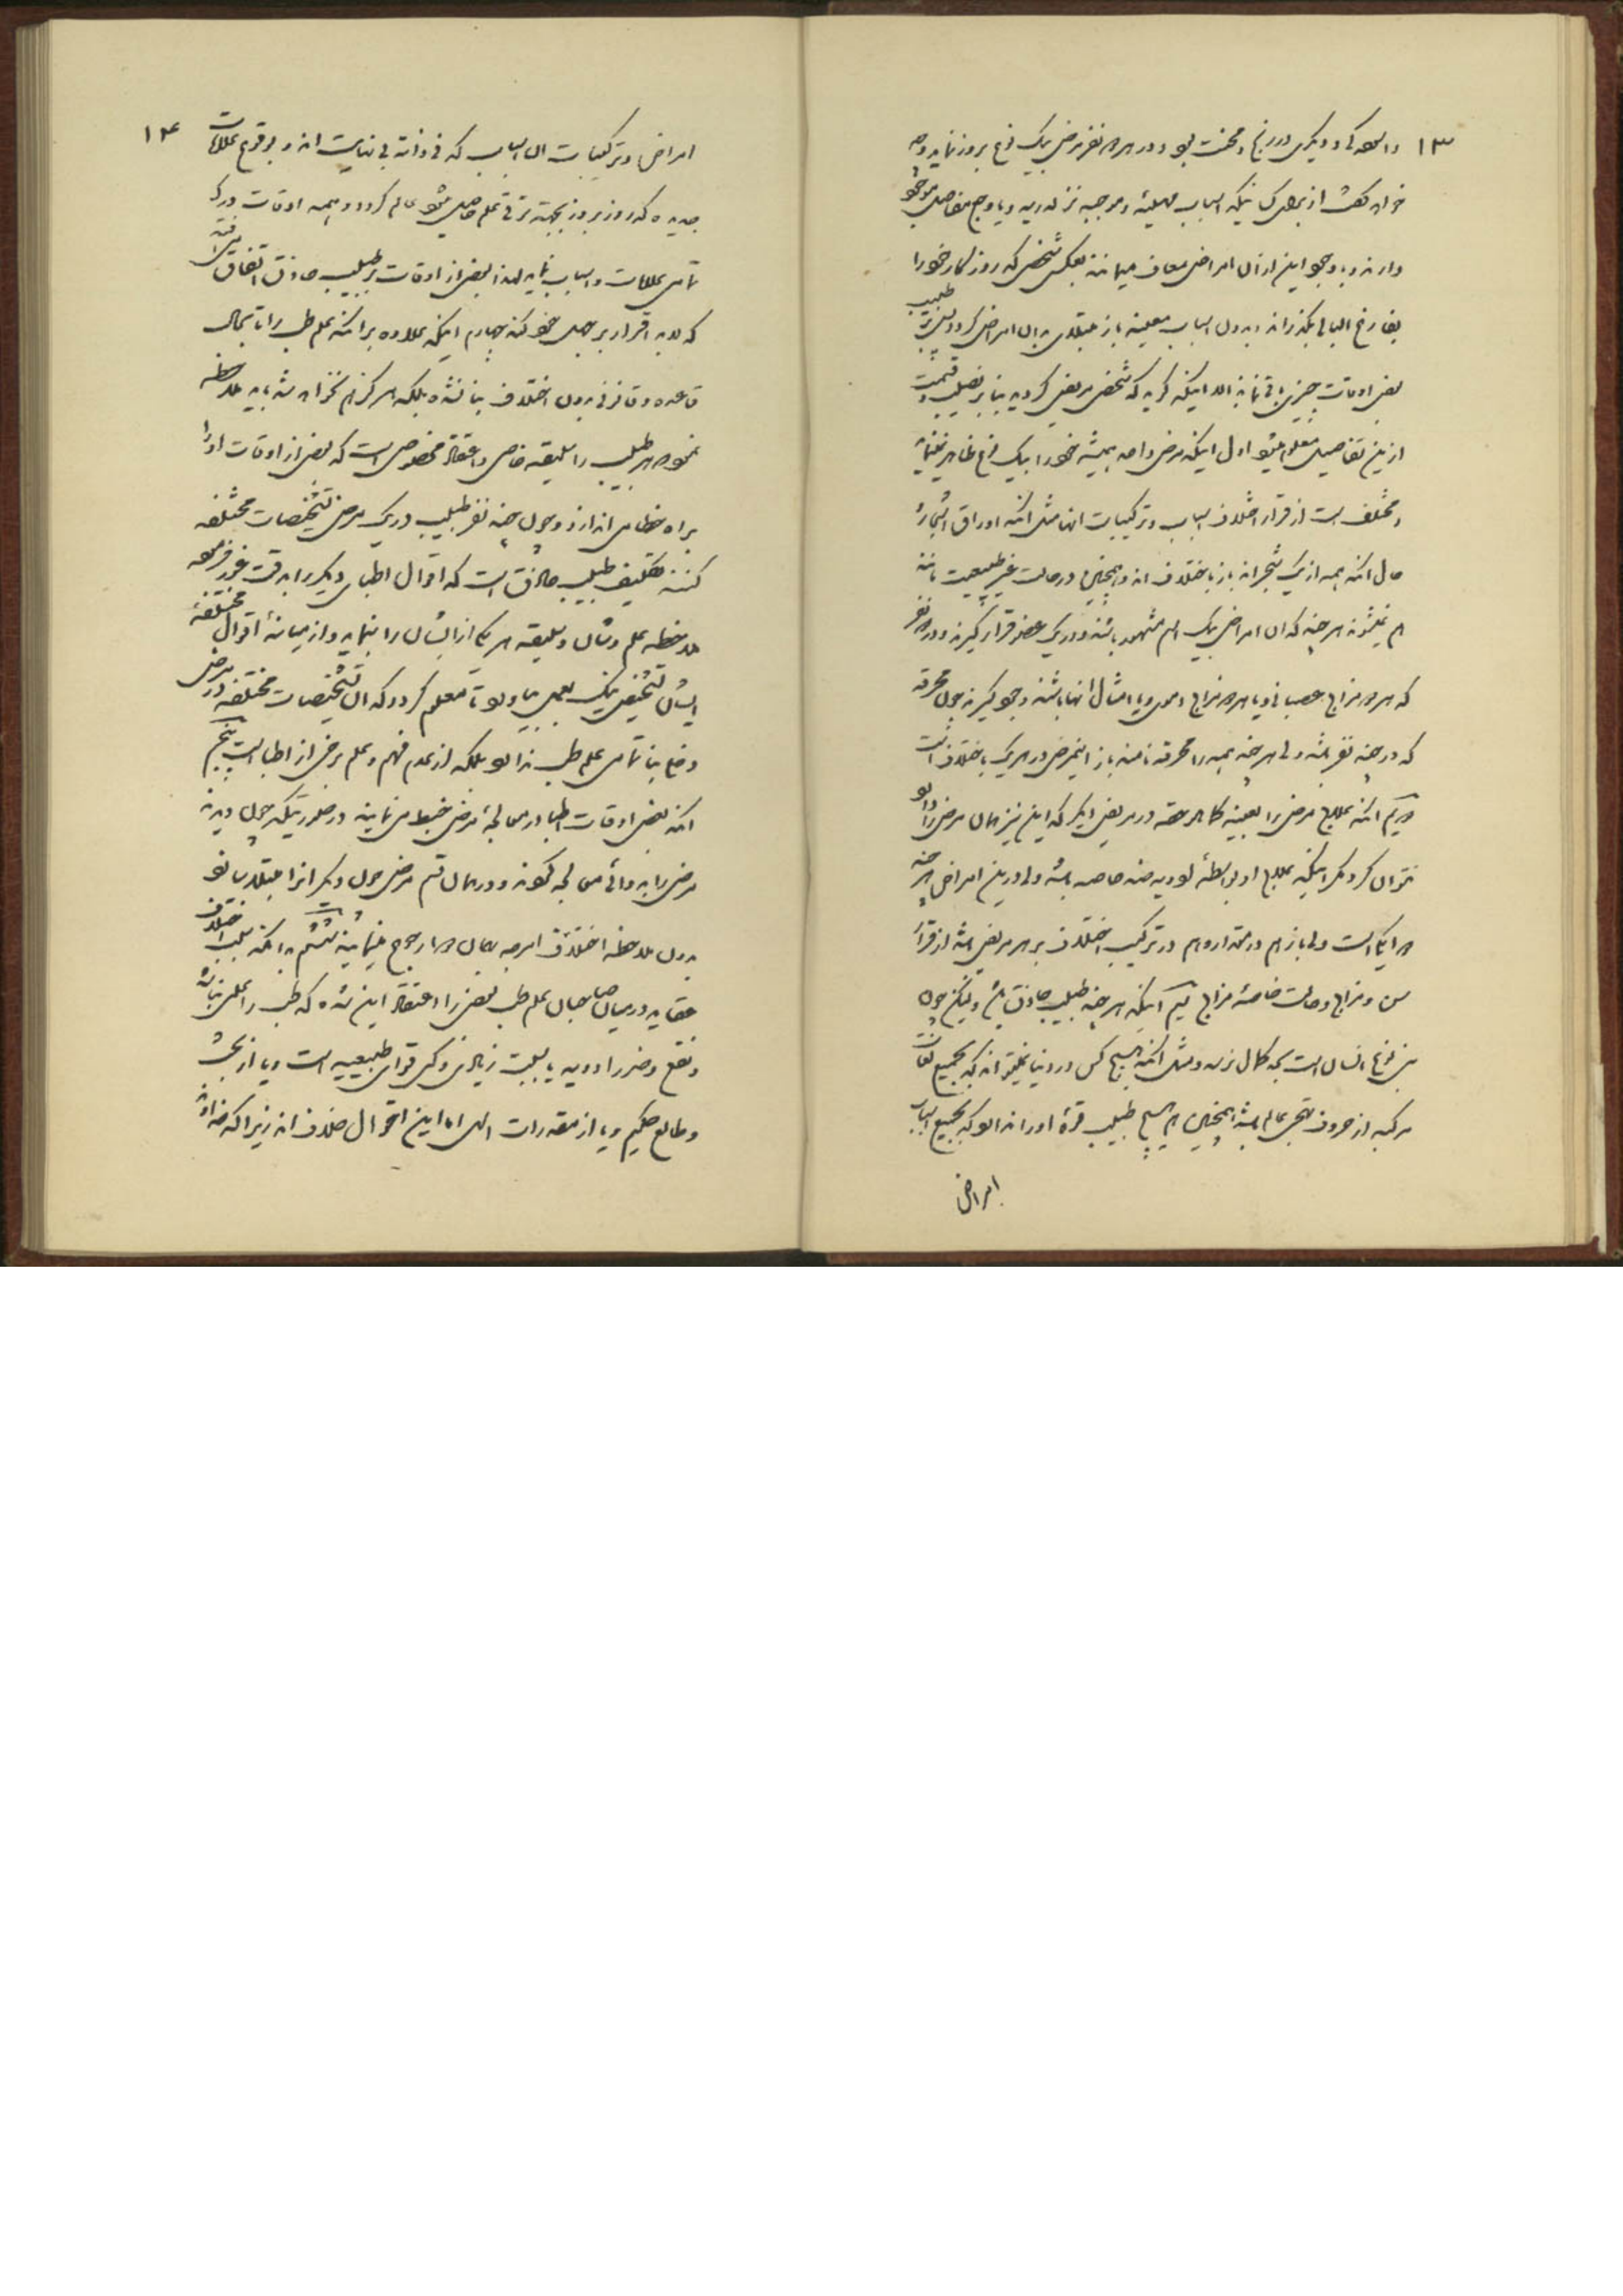 ۱۳
و در هر دو نفر مرض بیک نوع بروز نماید و چه
خواهد گفت از برای کسانیکه اسباب مهیئه و موجبه نزله ریه و یا وجع مفاصل موجود
دارند و با وجود این از آن امراض معاف میمانند بعکس شخصی که روزگار خود را
بفارغ البالی بگذراند و بدون اسباب معینه باز مبتلای بدان امراض گردد پس طبیب
بعض اوقات چیزی باقی نماند الا اینکه گوید که شخص مریض گردیده بنابر نصیب و قسمت
ازین تفاصیل معلوم میشود اول اینکه مرض واحد همیشه خود را بیک نوع ظاهر نمینماید
و مختلف است از قرار اختلاف اسباب و ترکیبات آنها مثل آنکه اوراق اشجار
حال آنکه همه از یک شجراند باز باختلاف اند و همچنین در حالت غیر طبیعیت مانند
هم نمیشوند هر چند که آن امراض بیک اسم مشهور باشند و در یک عضو قرار گیرند و در دو نفر
که هر دو مزاج عصبانی و یا هر دو مزاج دموی و یا امثال آنها باشند وجود گیرند چون محرقه
که در چند نفر باشد ولی هر چند همه را محرقه نامند باز اینمرض در هر یک باختلاف است
دویم آنکه علاج مرض را بعینه کما هو حقه در مریض دیگر که این نیز همان مرض را دارد
نتوان کرد مگر اینکه علاج او بواسطه ادویه چند خاصه باشد ولی درین امراض هر چند
دوا یکی است ولی باز هم در مقدار و هم در ترکیب اختلاف بر هر مریض باشد از قرار
سن و مزاج و حالت خاصه مزاج سیم آنکه هر چند طبیب حاذق باشد ولیکن چون
بنی نوع انسان است بحد کمال نرسد و مثل آنکه هیچ کس در دنیا نمیتواند که بجمیع لغات
مرکبه از حروف تهجی عالم باشد همچنین هیچ طبیب قوه او را ندارد که بجمیع اسباب
امراض
۱۴
امراض و ترکیبات آن اسباب که فی ذاته بی نهایت اند و بوقوع علامات
جدیده که روز بروز بجهة ترقی علم حاصل میشود عالم گردد و همه اوقات درک
تمامی علامات و اسباب نماید لهذا بعض از اوقات بر طبیب حاذق اتفاق می افتد
که لابد اقرار بر جهل خود کند چهارم اینکه علاوه بر آنکه علم طب را تا بحال
قاعده و قانونی بدون اختلاف بنا نشده بلکه هرگز هم نخواهد شد باید ملاحظه
نمود هر طبیب را سلیقه خاص و اعتقاد مخصوصی است که بعض از اوقات او را
براه خطا می اندازد و چون چند نفر طبیب در یک مرض تشخیصات مختلفه
کنند تکلیف طبیب حاذق است که اقوال اطبای دیگر را بدقت غور فرموده
ملاحظه علم و شأن و سلیقه هر یک از ایشان را بنماید و از میانه اقوال مختلفه
ایشان تشخیص نیک بعمل بیاورد تا معلوم گردد که آن تشخیصات مختلفه در مرض
واحد بنا تمامی علم طب ندارد بلکه از عدم فهم و علم برخی از اطبا است پنجم
آنکه بعض اوقات اطبا در معالجه مرض خبط می نمایند در صورتیکه چون دیدند
مرض را بدوائی معالجه نمودند و در همان قسم مرض چون دیگران را مبتلا بیابند
بدون ملاحظه اختلاف امزجه بهمان دوا رجوع مینمایند ششم آنکه بسبب اختلاف
عقاید در میان صاحبان علم طب بعض را اعتقاد این شده که طب را عملی نباشد
و نفع و ضرر ادویه یا بسبب زیادتی و کمی قوای طبیعیه است و یا از بخت
و طالع حکیم و یا از مقدرات الهی اما این اقوال خلاف اند زیرا که خداوند